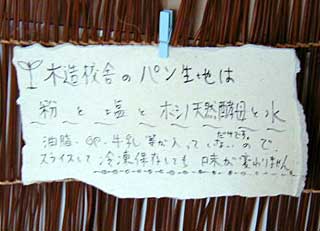 木造校舎のパン生地は
粉と塩とホシノ天然酵母と水
だけです。
油脂・卵・牛乳等が入っていないので、
スライスして冷凍保存しても味が変わりません